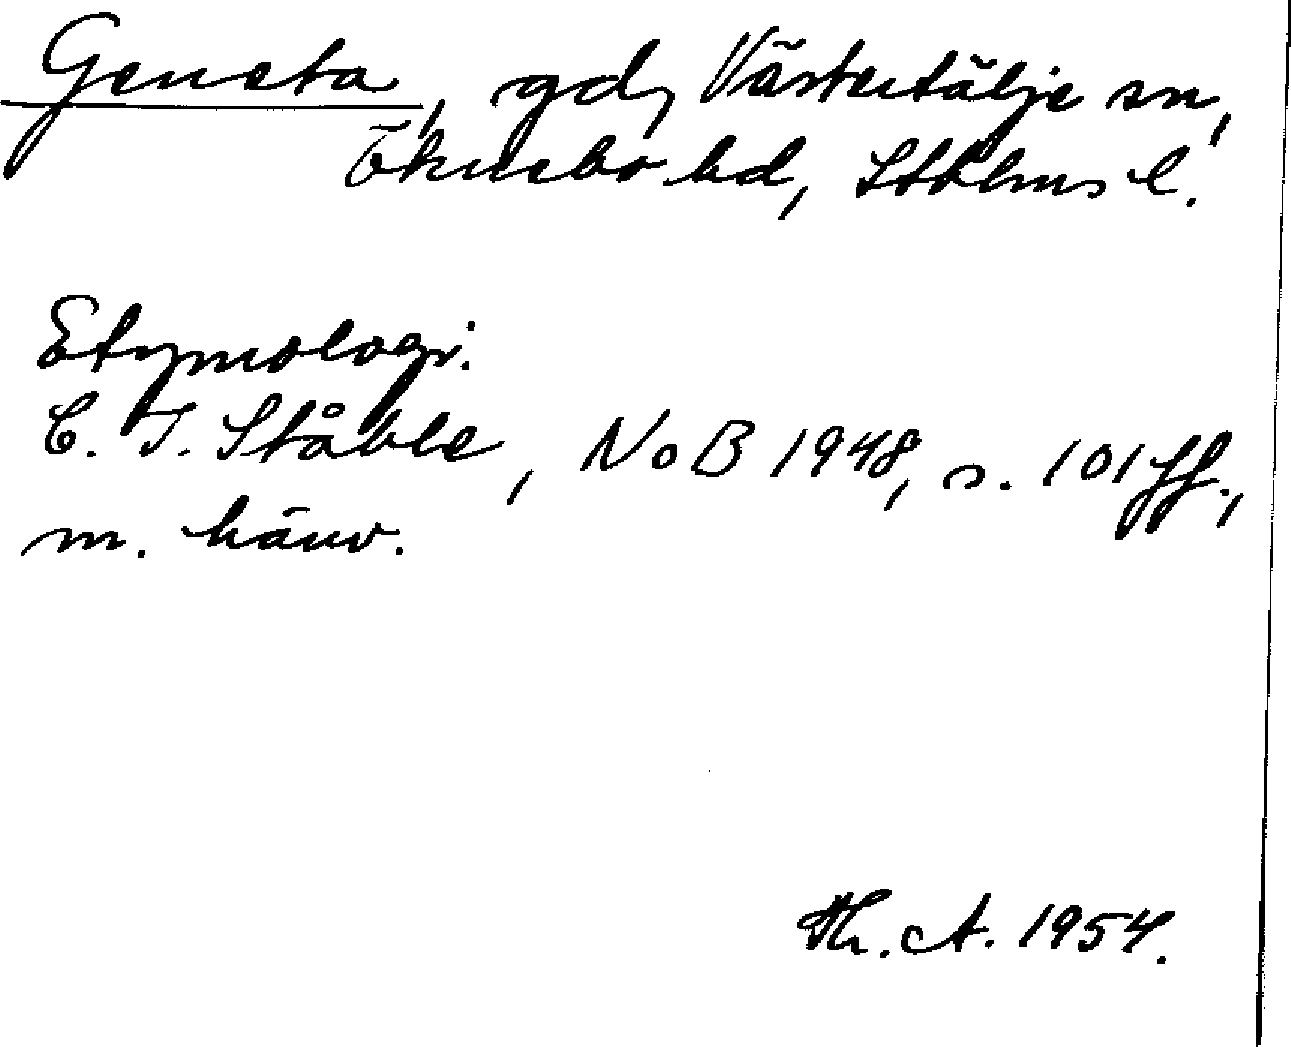 Geneta, gd, Västertälje sn,
Öknebo hd, Sthlms l.
Etymologi.
C. I. Ståhle, NoB 1948, s. 101 ff.,
m. hänv.
Th. A. 1954.